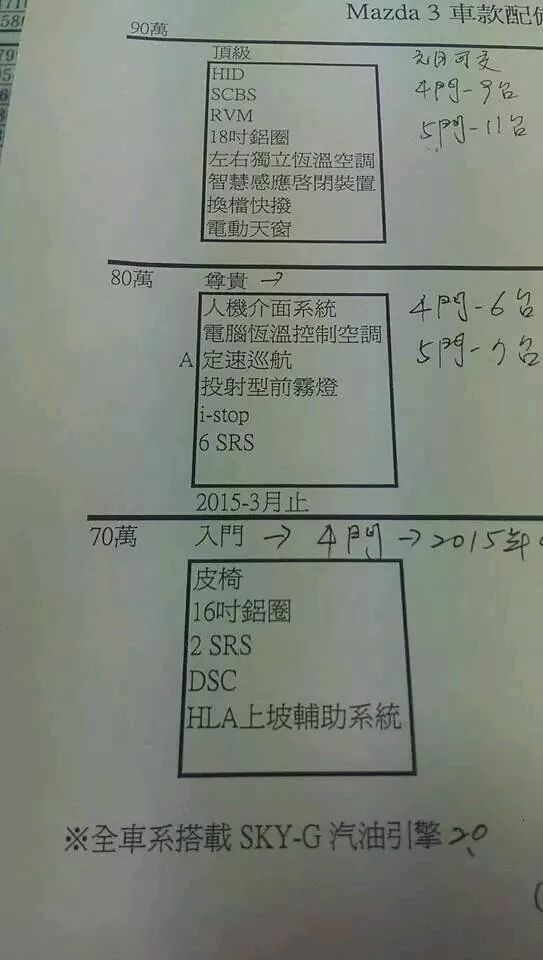 Mazda 3 車款配備
90萬
頂級
HID
SCBS
RVM
18吋鋁圈
左右獨立恆溫空調
智慧感應啓閉裝置
換檔快撥
電動天窗
元月可交
4門-9台
5門-11台
80萬
尊貴 →
人機介面系統
電腦恆溫控制空調
A 定速巡航
投射型前霧燈
i-stop
6 SRS
4門-6台
5門-7台
2015-3月止
70萬 入門 → 4門 → 2015年
皮椅
16吋鋁圈
2 SRS
DSC
HLA上坡輔助系統
※全車系搭載 SKY-G 汽油引擎 2.0